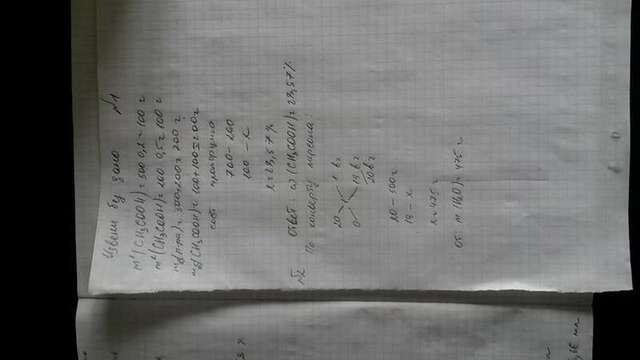 Извени без дано №1
m¹(CH₃COOH) = 500·0,2 = 100 г
m²(CH₃COOH) = 200·0,5 = 100 г
m(р-ра) = 500+200 = 700 г
m(CH₃COOH) = 100+100 = 200 г
сост пропорцию
700 – 200
100 – x
x = 28,57%
Ответ: ω(CH₃COOH) = 28,57%
№2 По конверту
20 1 кг
1
0 19 кг
20 кг
20 – 500 г
19 – x
x = 475 г
От: m(H₂O) = 475 г